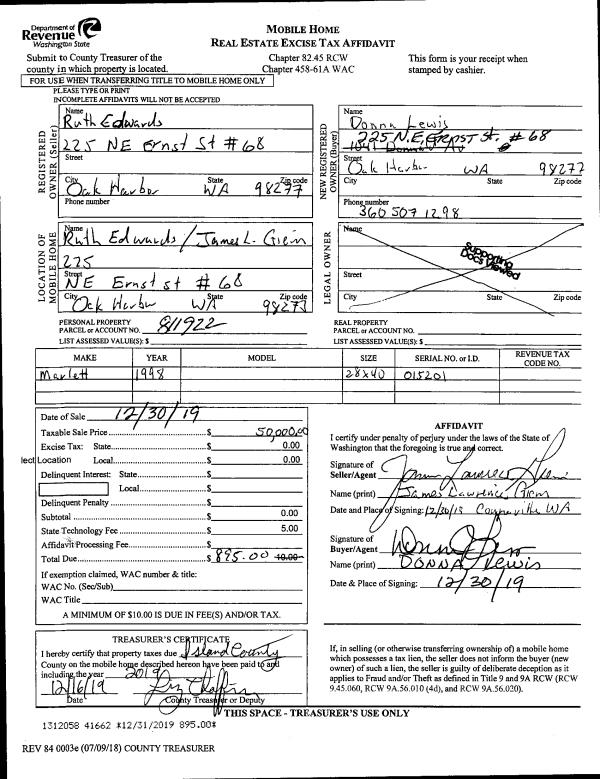 Department of
Revenue
Washington State
MOBILE HOME
REAL ESTATE EXCISE TAX AFFIDAVIT
Submit to County Treasurer of the
county in which property is located.
Chapter 82.45 RCW
Chapter 458-61A WAC
This form is your receipt when
stamped by cashier.
FOR USE WHEN TRANSFERRING TITLE TO MOBILE HOME ONLY
PLEASE TYPE OR PRINT
INCOMPLETE AFFIDAVITS WILL NOT BE ACCEPTED
REGISTERED
OWNER (Seller)
Name
Ruth Edwards
225 NE Ernst St #68
Street
City State Zip code
Oak Harbor WA 98277
Phone number
NEW REGISTERED
OWNER (Buyer)
Name
Donna Lewis
225 N.E. Ernst St. #68
Street
Oak Harbor WA 98277
City State Zip code
Phone number
360 507 1298
LOCATION OF
MOBILE HOME
Name
Ruth Edwards / James L. Giem
225
Street
NE Ernst st #68
City State Zip code
Oak Harbor WA 98277
LEGAL OWNER
Name
Supporting
Docs Viewed
Street
City State Zip code
PERSONAL PROPERTY
PARCEL or ACCOUNT NO. 811922
LIST ASSESSED VALUE(S): $
REAL PROPERTY
PARCEL or ACCOUNT NO.
LIST ASSESSED VALUE(S): $
MAKE YEAR MODEL SIZE SERIAL NO. or I.D. REVENUE TAX
CODE NO.
Marlett 1998 28x40 015201
Date of Sale 12/30/19
Taxable Sale Price $ 50,000.00
Excise Tax: State $ 0.00
lect Location Local $ 0.00
Delinquent Interest: State $
Local $
Delinquent Penalty $
Subtotal $ 0.00
State Technology Fee $ 5.00
Affidavit Processing Fee $
Total Due $ 895.00 10.00
If exemption claimed, WAC number & title:
WAC No. (Sec/Sub)
WAC Title
A MINIMUM OF $10.00 IS DUE IN FEE(S) AND/OR TAX.
AFFIDAVIT
I certify under penalty of perjury under the laws of the State of
Washington that the foregoing is true and correct.
Signature of
Seller/Agent
Name (print) James Lawrence Giem
Date and Place of Signing: Coupeville WA
Signature of
Buyer/Agent
Name (print) DONNA Lewis
Date & Place of Signing: 12/30/19
TREASURER'S CERTIFICATE
I hereby certify that property taxes due Island County
County on the mobile home described hereon have been paid to and
including the year 2019
12/16/19
Date County Treasurer or Deputy
If, in selling (or otherwise transferring ownership of) a mobile home
which possesses a tax lien, the seller does not inform the buyer (new
owner) of such a lien, the seller is guilty of deliberate deception as it
applies to Fraud and/or Theft as defined in Title 9 and 9A RCW (RCW
9.45.060, RCW 9A.56.010 (4d), and RCW 9A.56.020).
THIS SPACE - TREASURER'S USE ONLY
1312058 41662 *12/31/2019 895.00*
REV 84 0003e (07/09/18) COUNTY TREASURER